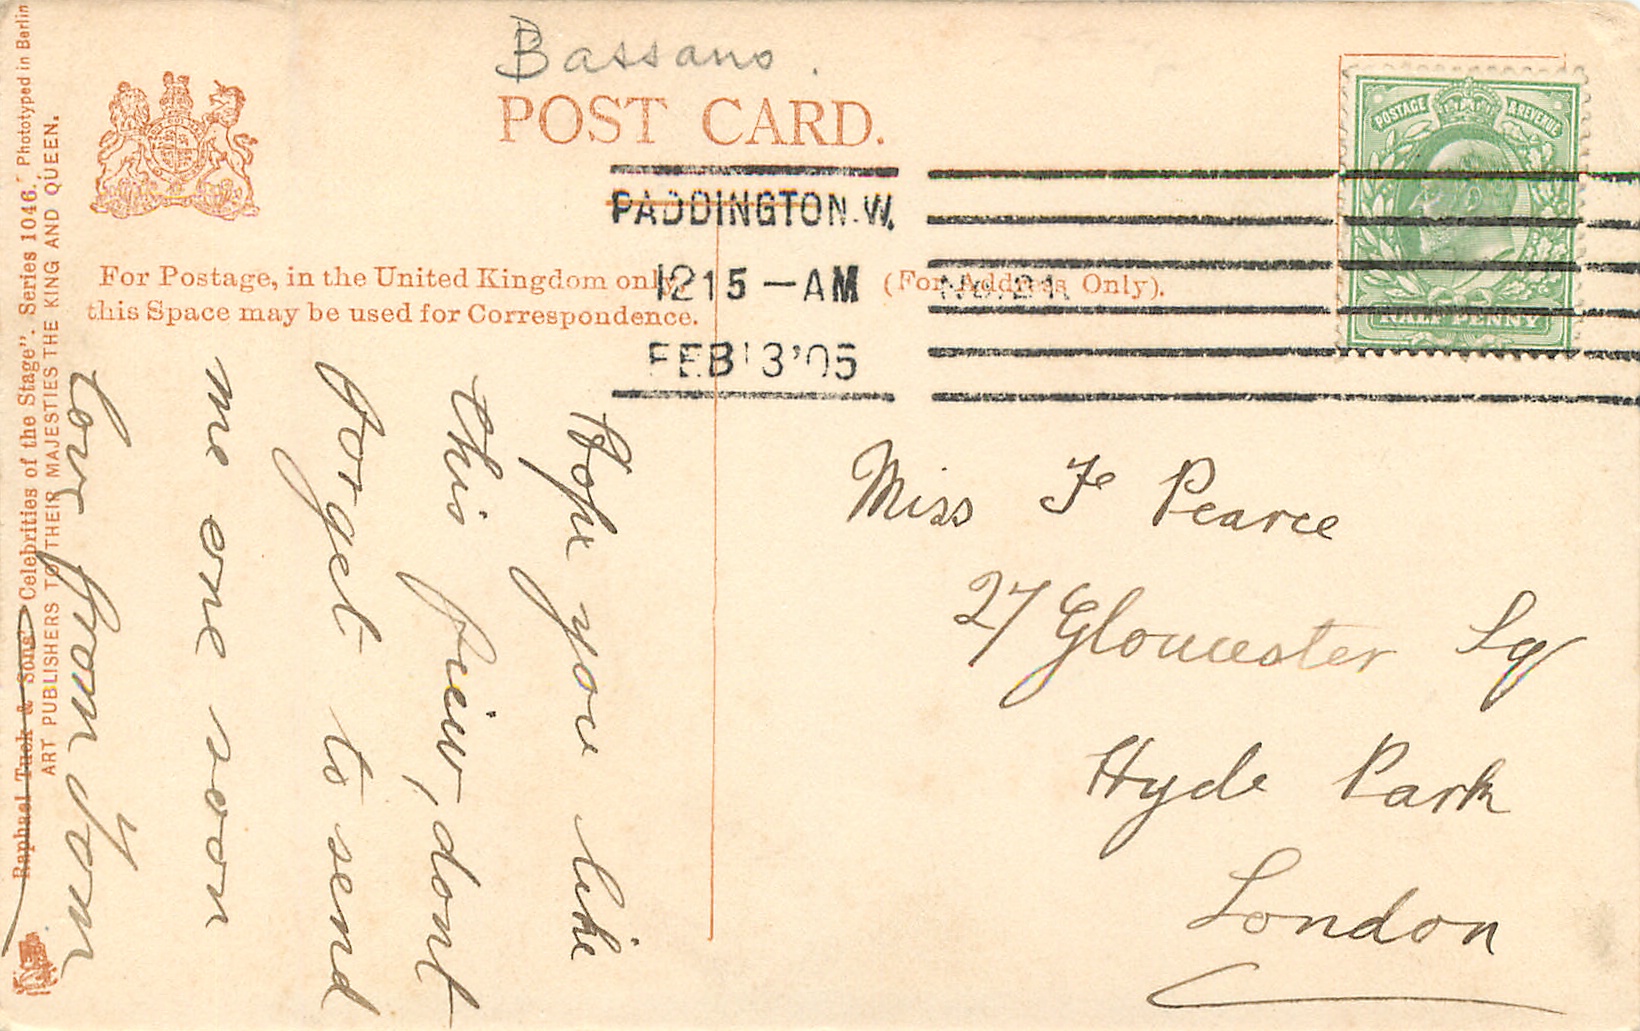 Bassano.
POST CARD.
PADDINGTON.W.
1215-AM
FEB 13'05
POSTAGE & REVENUE
HALF PENNY
For Postage, in the United Kingdom only,
this Space may be used for Correspondence.
(For Address Only).
Hope you like
this view, dont
forget to send
me one soon
love from
Miss F Pearce
27 Gloucester Sq
Hyde Park
London
Raphael Tuck & Sons' "Celebrities of the Stage". Series 1046. Phototyped in Berlin
ART PUBLISHERS TO THEIR MAJESTIES THE KING AND QUEEN.